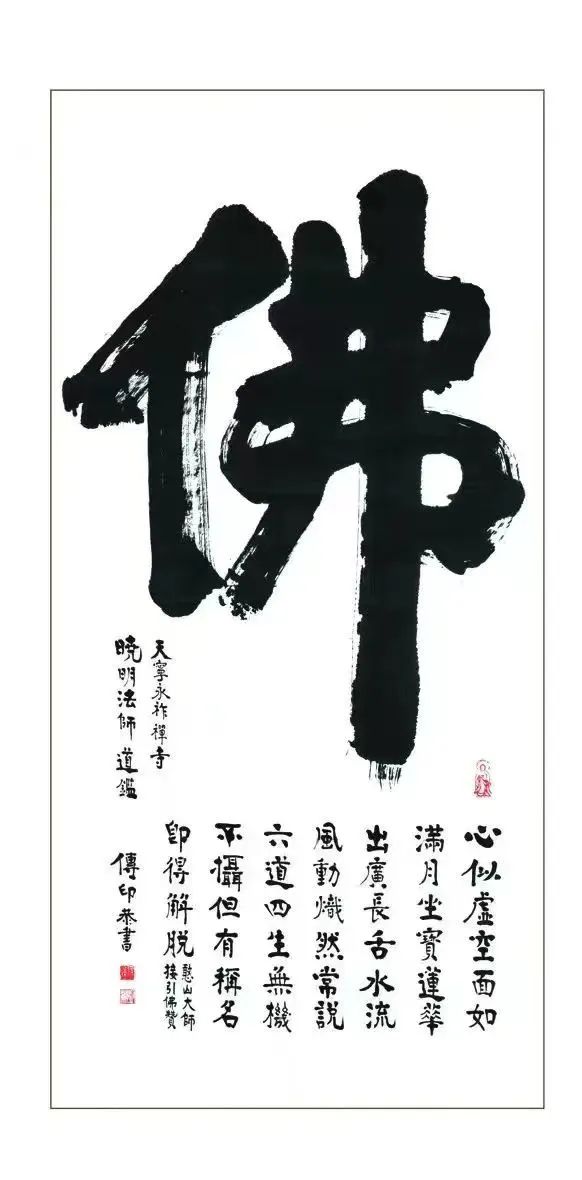 佛
心似虛空面如
滿月坐寶蓮華
出廣長舌水流
風動熾然常說
六道四生無機
不攝但有稱名
即得解脫
憨山大師
接引佛贊
天寧永祚禪寺
曉明法師道鑑
傳印恭書